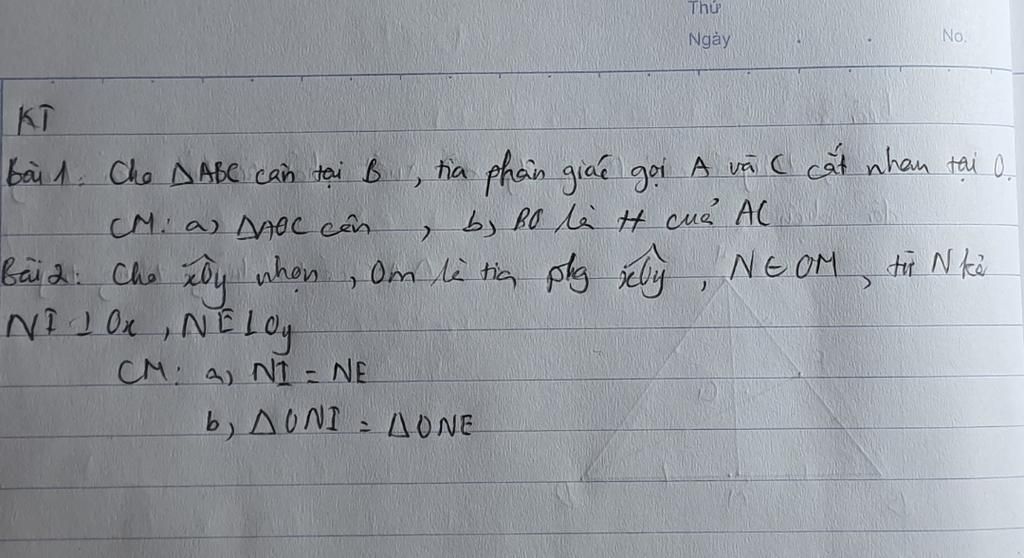 Thứ
Ngày No.
KT
Bài 1: Cho ΔABC cân tại B, tia phân giác gọi A và C cắt nhau tại O.
CM: a, ΔAOC cân, b, BO là tt cuả AC
Bài 2: Cho xÔy nhọn, Om là tia plg xÔy, N ∈ OM, từ N kẻ
NI ⊥ Ox, NE ⊥ Oy
CM: a, NI = NE
b, ΔONI = ΔONE